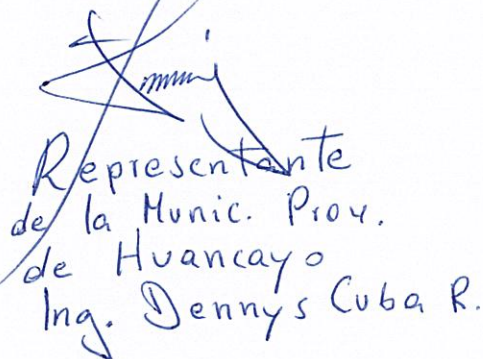 Representante
de la Munic. Prov.
de Huancayo
Ing. Dennys Cuba R.